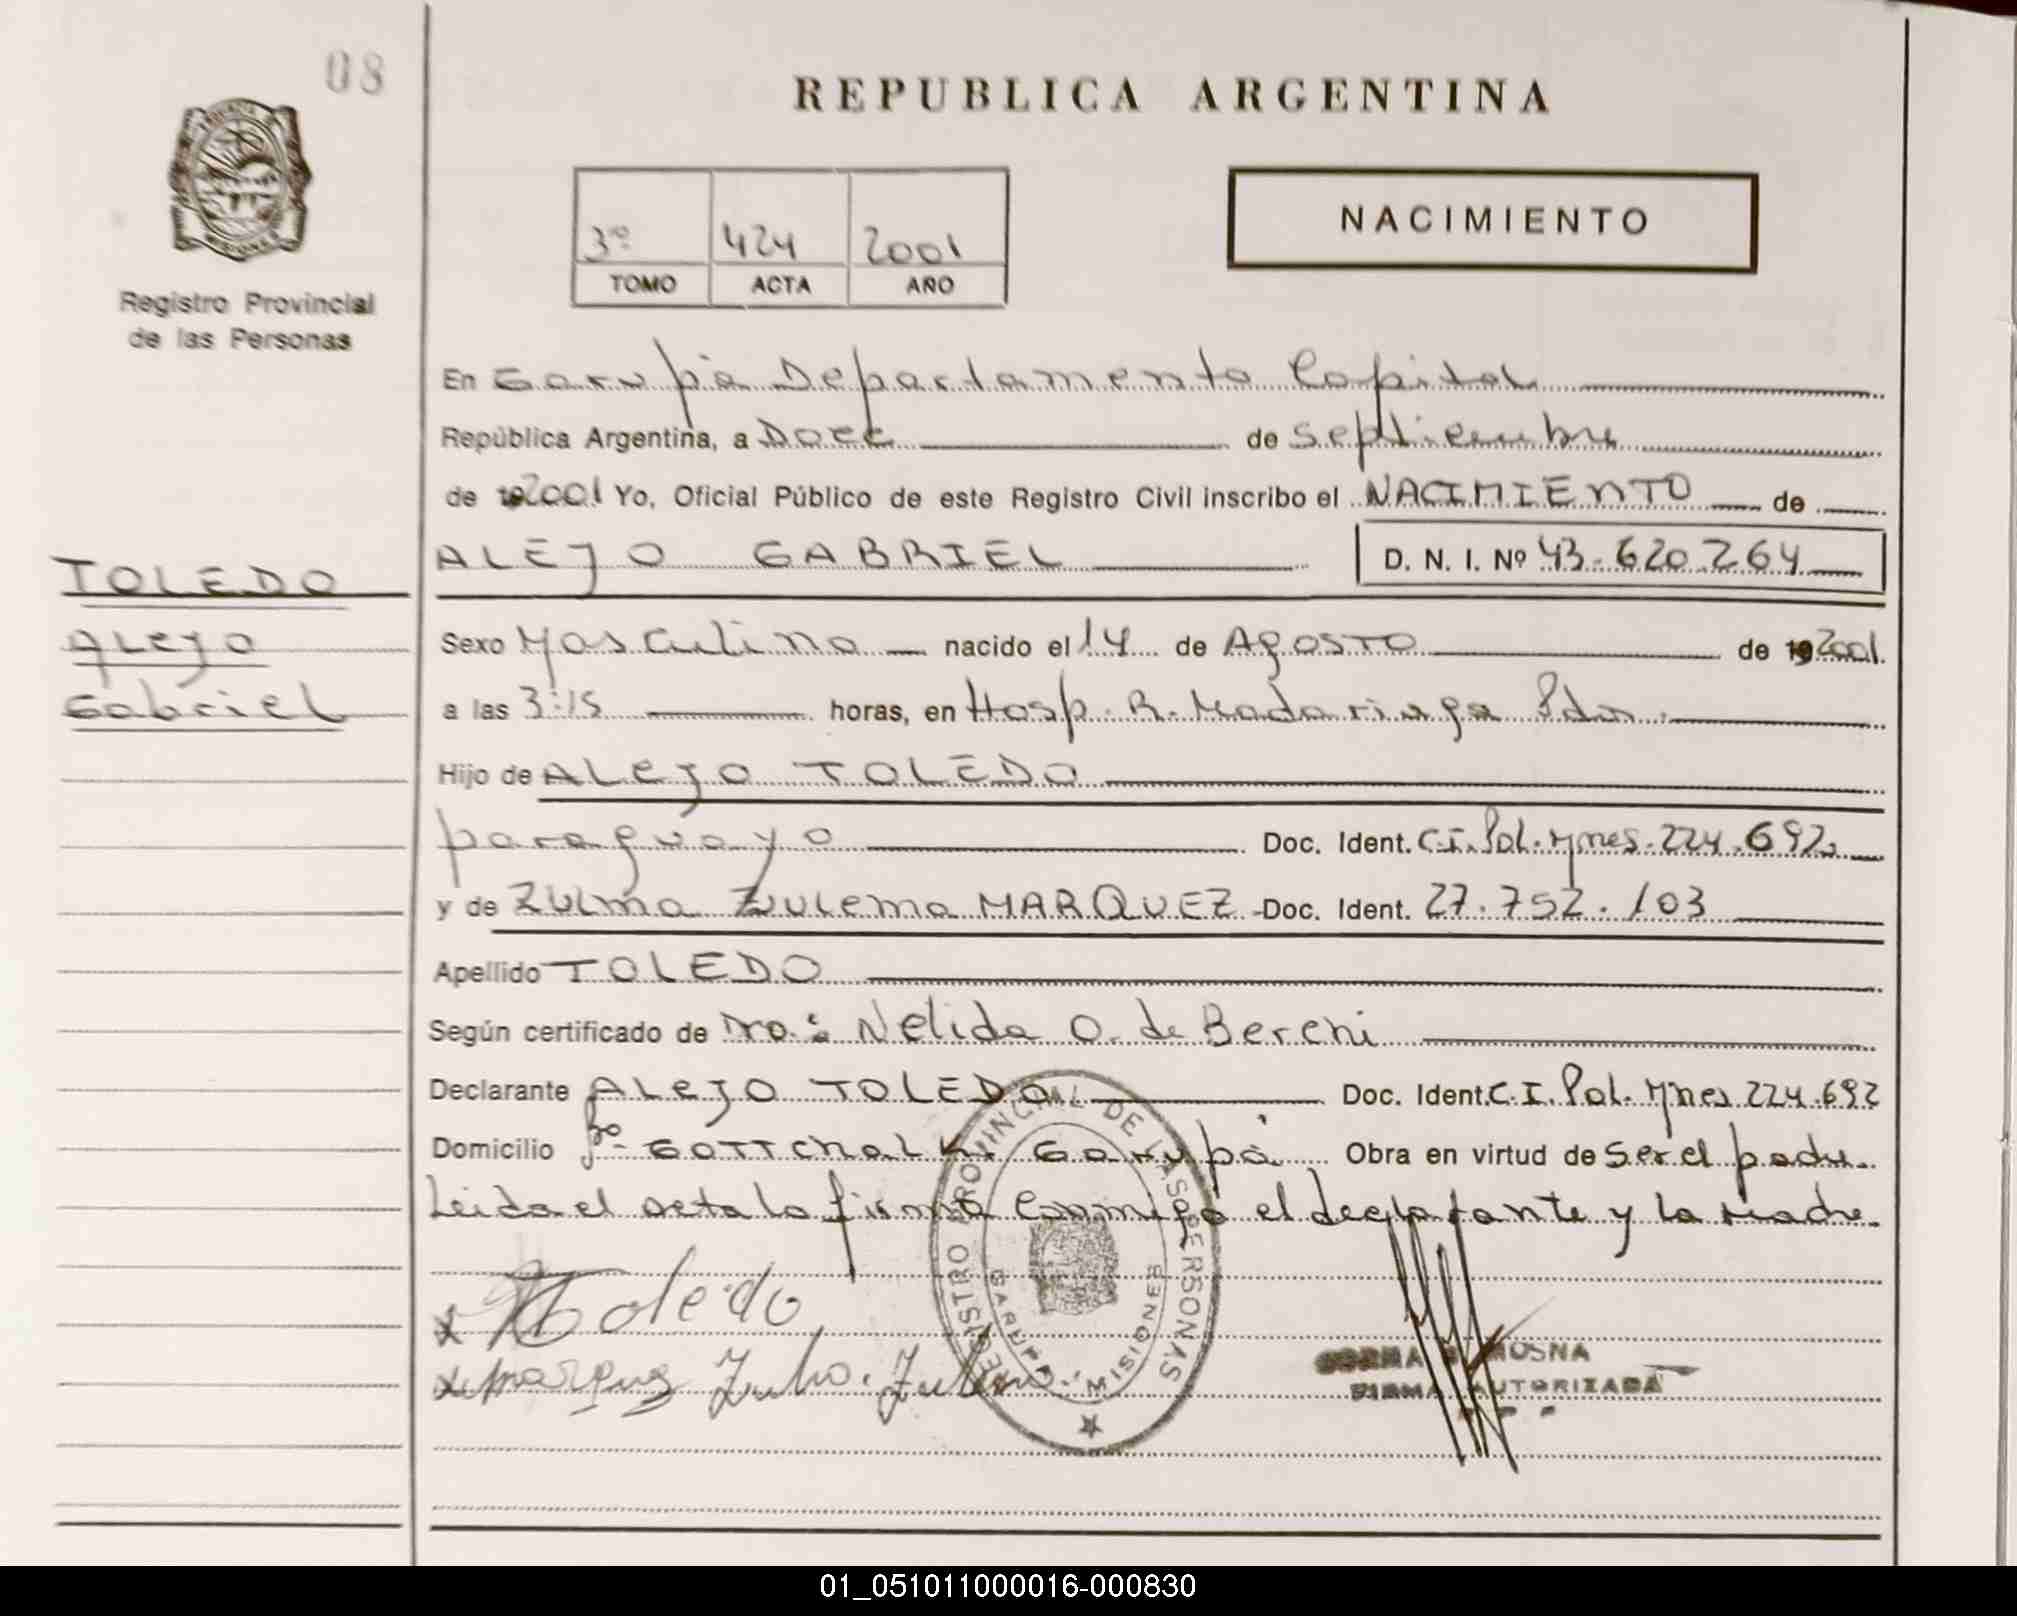 08
REPUBLICA ARGENTINA
NACIMIENTO
3º 424 2001
TOMO ACTA AÑO
MISIONES
Registro Provincial
de las Personas
En Garupà Departamento Capital
República Argentina, a Doce de septiembre
de 192001 Yo, Oficial Público de este Registro Civil inscribo el NACIMIENTO de
ALEJO GABRIEL D. N. I. Nº 43.620.264
TOLEDO
Alejo
Gabriel
Sexo Masculino nacido el 14 de Agosto de 192001.
a las 3:15 horas, en Hosp. R. Madariaga Pdas.
Hijo de ALEJO TOLEDO
paraguayo Doc. Ident. C.I. Pol. Mnes. 224.692
y de Zulma Zulema MARQUEZ Doc. Ident. 27.752.103
Apellido TOLEDO
Según certificado de Dra.: Nelida O. de Bereni
Declarante ALEJO TOLEDO Doc. Ident. C.I. Pol. Mnes 224.692
Domicilio Bº Garupà Obra en virtud de ser el padre.
Leida el acta la firma conmigo el declarante y la Madre.
x Toledo
x Marquez
REGISTRO PROVINCIAL DE LAS PERSONAS
GARUPA - MISIONES
MOSNA
FIRMA AUTORIZADA
01_051011000016-000830